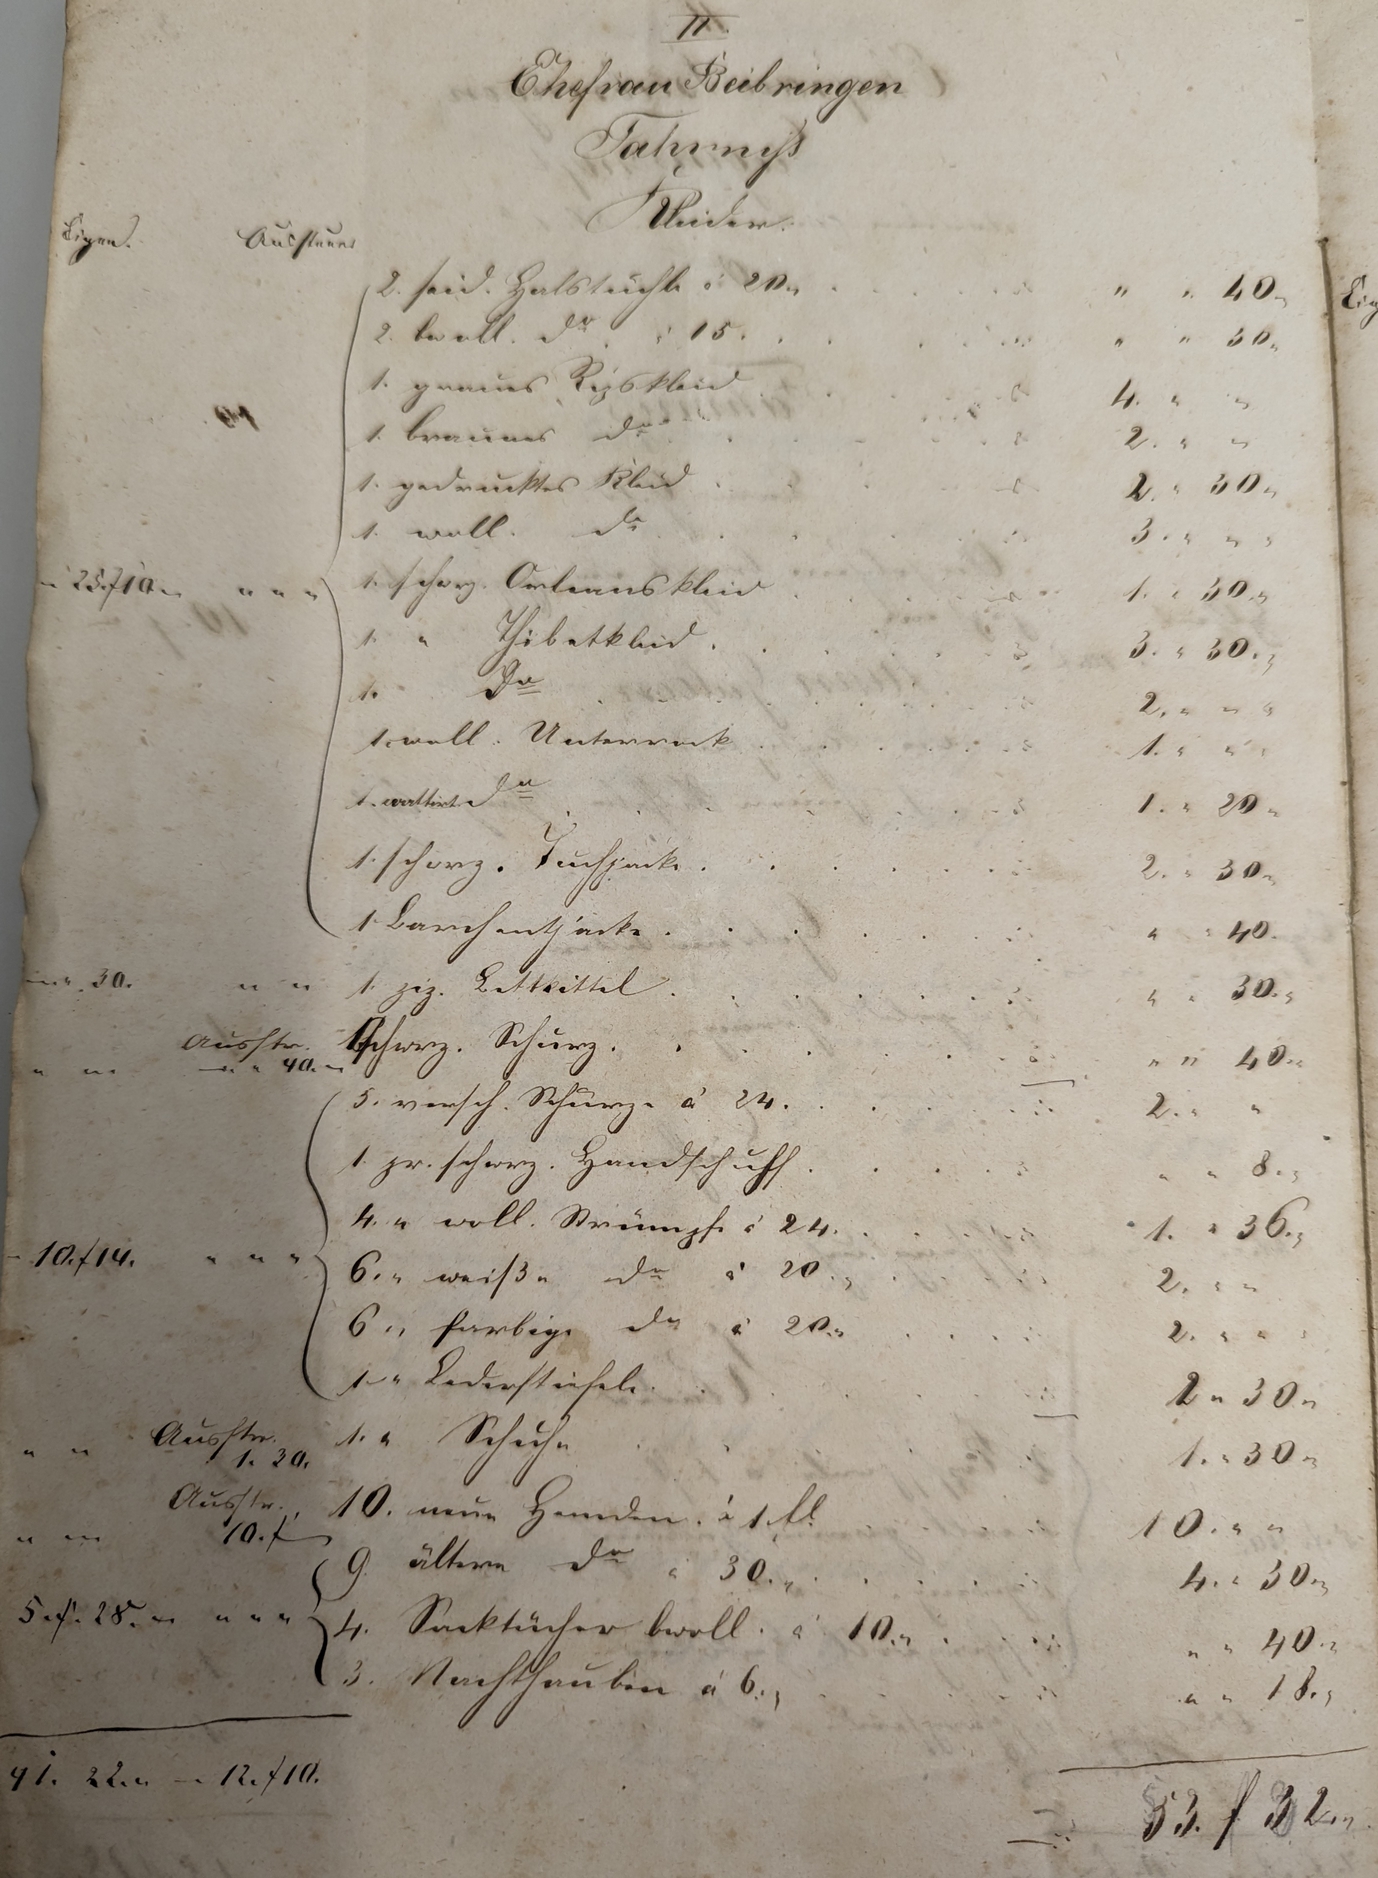 II.
Ehefrau Beibringen
Fahrniß
Kleider.
Eigen. Aussteuer
2. seid. Halstücher à 20.„ „ „ 40.„
2. bwoll. do. à 15. „ „ 30.„
1. graues Ripskleid 4. „ „
1. braunes do 2. „ „
1. gedrucktes Kleid 2. „ 30.„
1. woll. do 3. „ „
1. schwz. Orleanskleid 1. „ 30.„
25.f 10.„ „ „ „
1. „ Thibetkleid. 3. „ 30.„
1. Do 2. „ „
1. woll. Unterrock 1. „ „
1. wattirt. do 1. „ 20„
1. schwrz. Tuchjacke. 2. „ 30.„
1 Barchentjacke. „ „ 40.
„ „ 30. „ „ 1. ziz. Bettkittel. „ „ 30.„
Ausstr. 1 schwrz. Schurz. „ „ 40.„
„ „ „ „ 40.„
5. versch. Schürze à 24. 2. „ „
1. pr. schwrz. Handschuh. „ „ 8.„
4. „ woll. Strümpfe à 24. 1. „ 36.„
10.f 14. „ „ „ 6. „ weiße do à 20.„ 2. „ „
6 „ farbige do à 20.„ 2. „ „
1. „ Lederstiefele. 2 „ 30 „
„ „ Ausstr. 1. „ Schuhe 1. „ 30 „
1. 30.
Ausstr. 10. neue Hemden. à 1 fl. 10. „ „
„ „ 10.f
9. ältere do à 30.„ 4. „ 30.„
5.f. 28. „ „ „ „ 4. Sacktücher bwoll. à 10.„ „ „ 40.„
3. Nachthauben à 6.„ „ „ 18.„
41. 22.„ — 12.f 10.
53. f 32.„
Eig